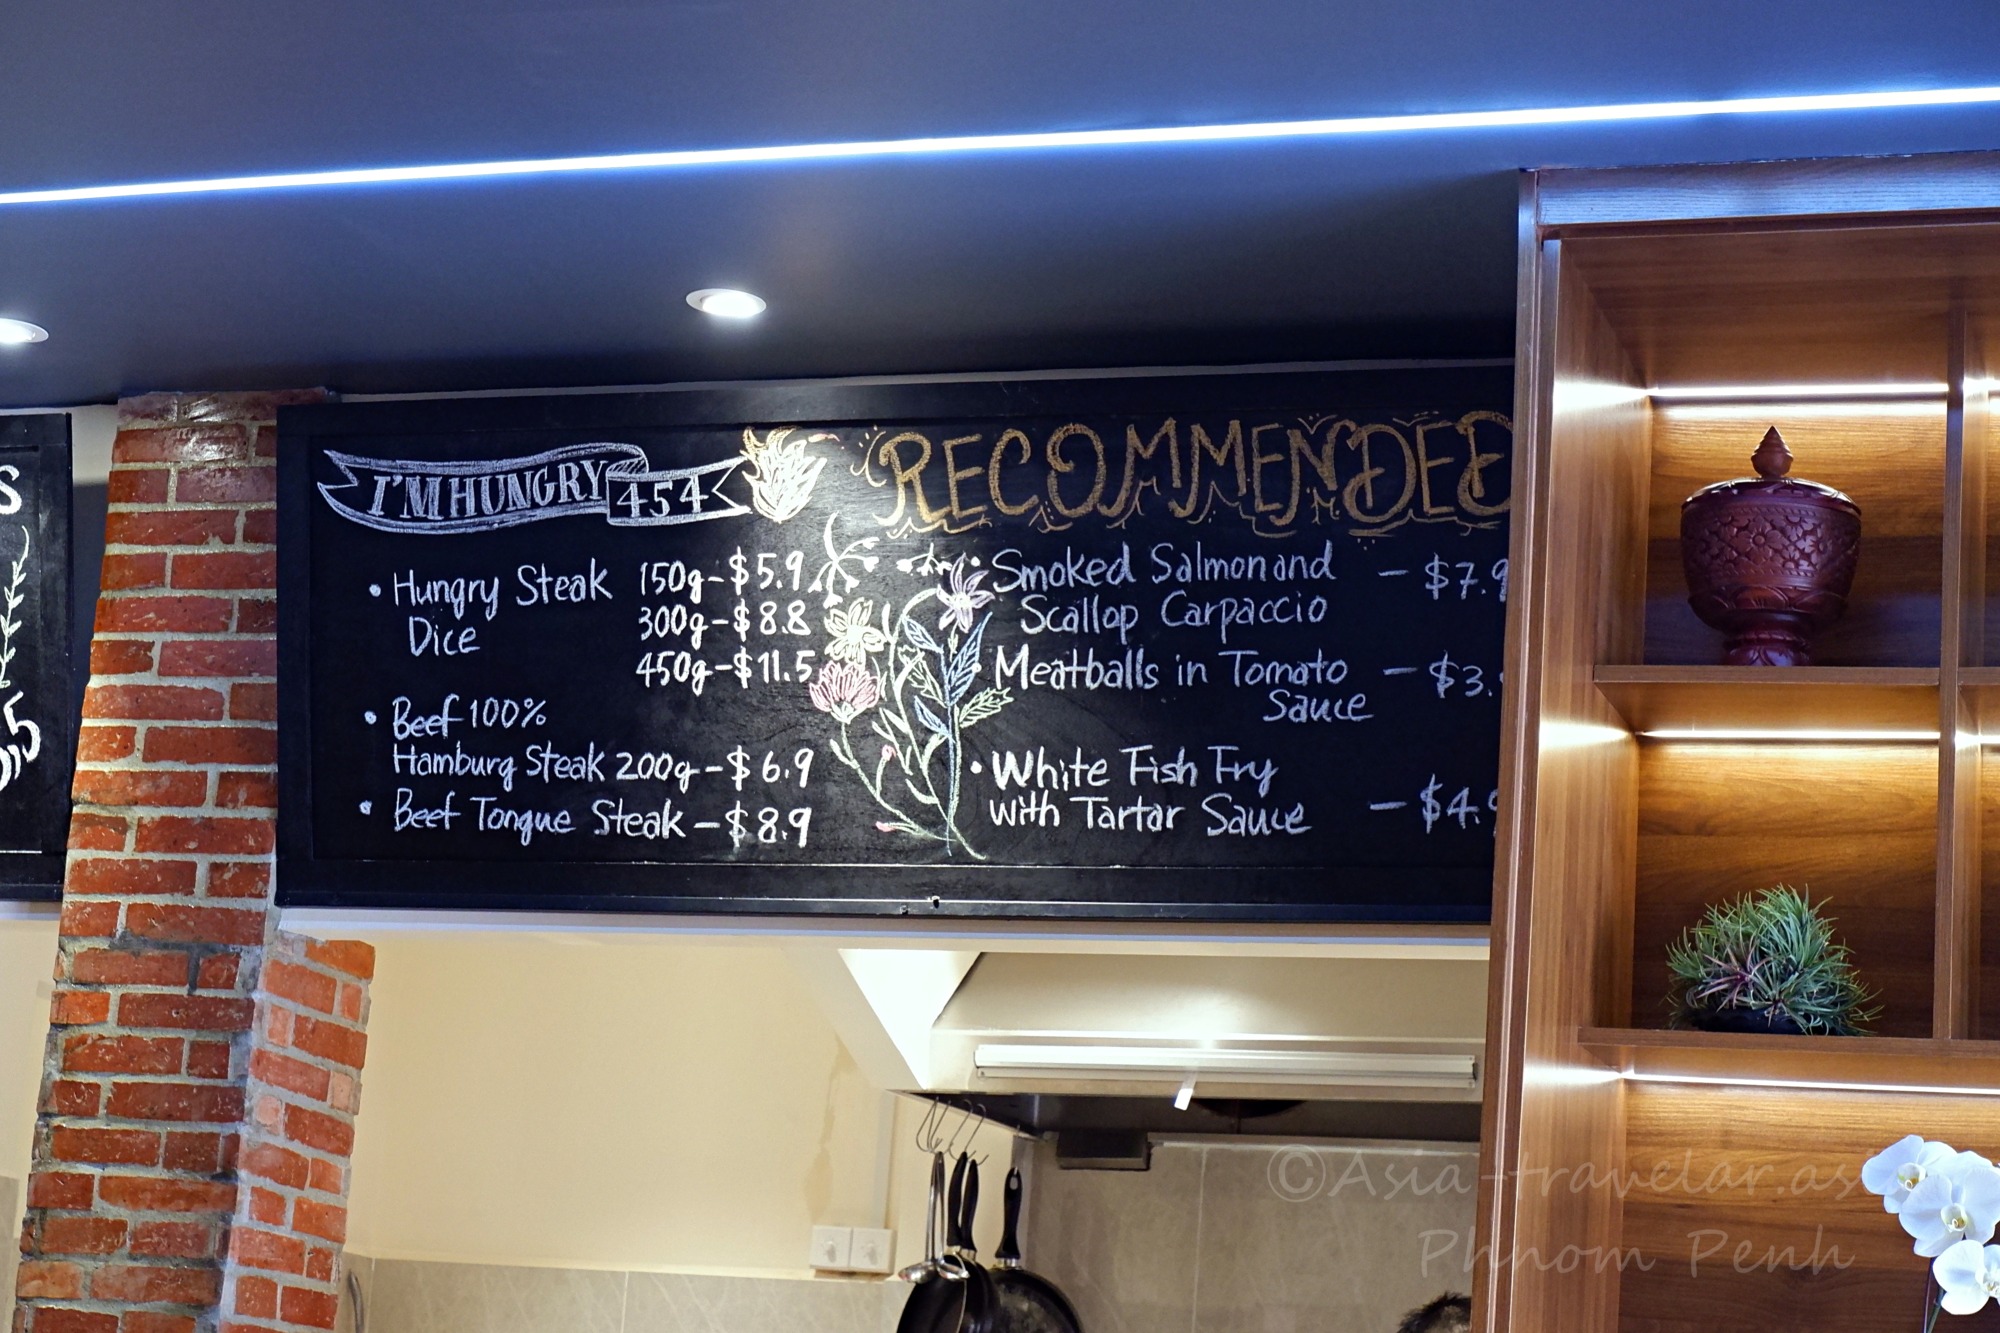 S
5
I'M HUNGRY 454
• Hungry Steak 150g - $5.9
Dice 300g - $8.8
450g - $11.5
• Beef 100%
Hamburg Steak 200g - $6.9
• Beef Tongue Steak - $8.9
RECOMMENDED
• Smoked Salmon and - $7.9
Scallop Carpaccio
• Meatballs in Tomato - $3.
Sauce
• White Fish Fry
with Tartar Sauce - $4.9
©Asia-travelar.as
Phnom Penh